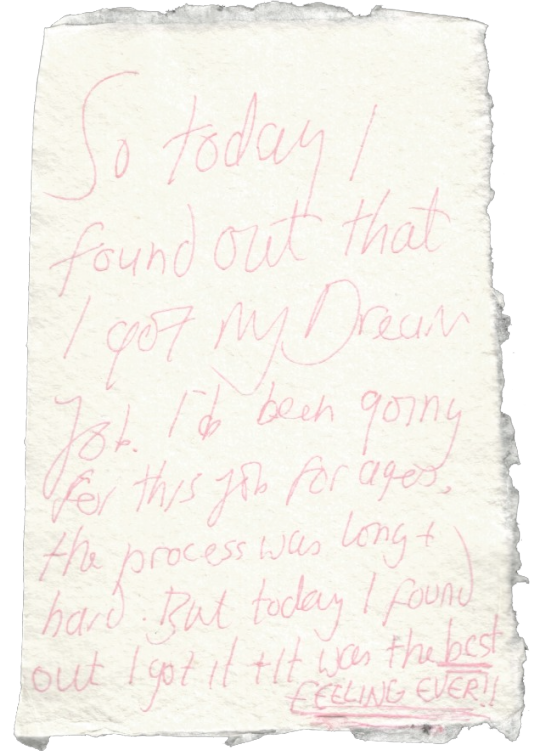 So today I
found out that
I got my Dream
Job. I'd been going
for this job for ages,
the process was long +
hard. But today I found
out I got it + It was the best
FEELING EVER!!